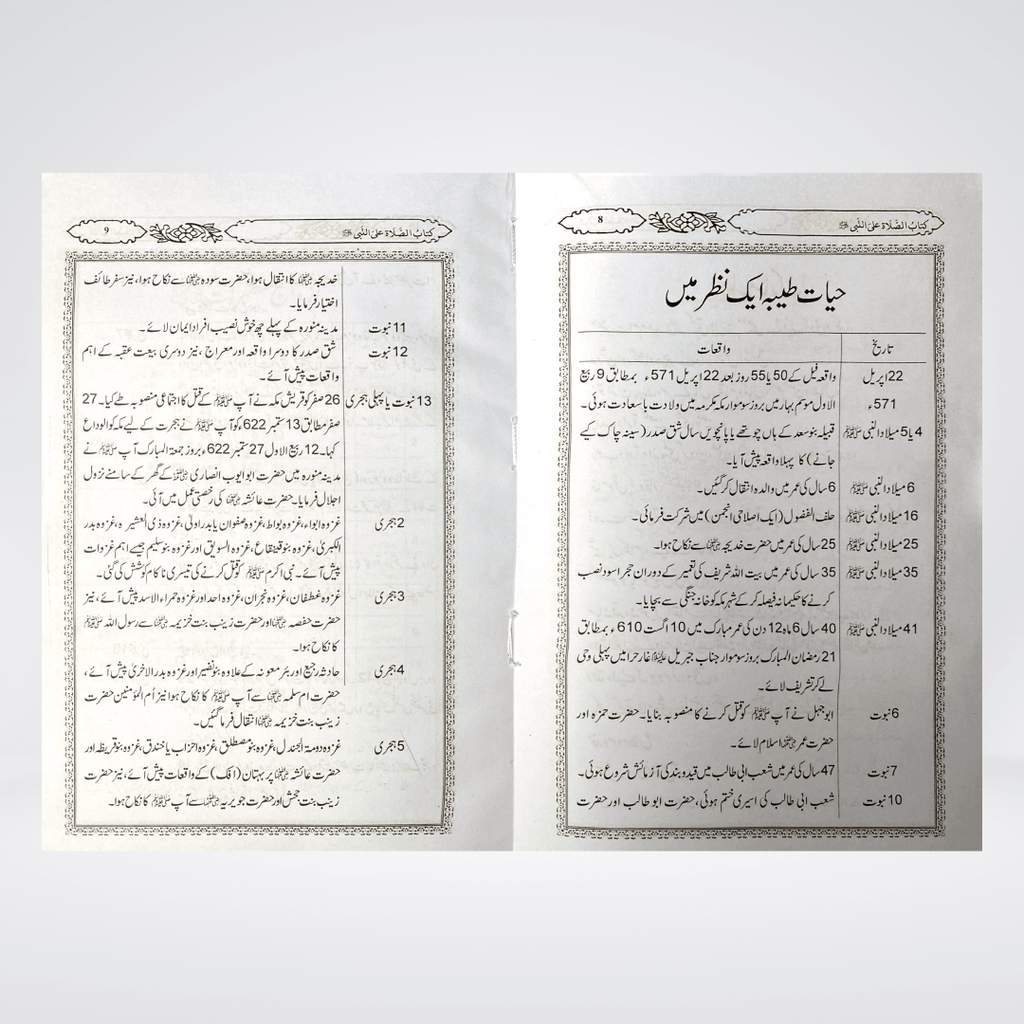 كتابُ الصَّلَاة عَلیَ النَّبِی ﷺ
8
حیات طیبہ ایک نظر میں
تاریخ واقعات
22 اپریل واقعہ فیل کے 50 یا 55 روز بعد 22 اپریل 571ء بمطابق 9 ربیع
571ء الاول موسم بہار میں بروز سوموار مکہ مکرمہ میں ولادت باسعادت ہوئی۔
4 یا 5 میلاد النبی ﷺ قبیلہ بنو سعد کے ہاں چوتھے یا پانچویں سال شق صدر (سینہ چاک کیے
جانے) کا پہلا واقعہ پیش آیا۔
6 میلاد النبی ﷺ 6 سال کی عمر میں والدہ انتقال کر گئیں۔
16 میلاد النبی ﷺ حلف الفضول (ایک اصلاحی انجمن) میں شرکت فرمائی۔
25 میلاد النبی ﷺ 25 سال کی عمر میں حضرت خدیجہ رضی اللہ عنہا سے نکاح ہوا۔
35 میلاد النبی ﷺ 35 سال کی عمر میں بیت اللہ شریف کی تعمیر کے دوران حجر اسود نصب
کرنے کا حکیمانہ فیصلہ کر کے شہر مکہ کو خانہ جنگی سے بچایا۔
41 میلاد النبی ﷺ 40 سال 6 ماہ 12 دن کی عمر مبارک میں 10 اگست 610ء بمطابق
21 رمضان المبارک بروز سوموار جناب جبریل علیہ السلام غار حرا میں پہلی وحی
لے کر تشریف لائے۔
6 نبوت ابو جہل نے آپ ﷺ کو قتل کرنے کا منصوبہ بنایا۔ حضرت حمزہ اور
حضرت عمر رضی اللہ عنہما اسلام لائے۔
7 نبوت 47 سال کی عمر میں شعب ابی طالب میں قید و بند کی آزمائش شروع ہوئی۔
10 نبوت شعب ابی طالب کی اسیری ختم ہوئی، حضرت ابو طالب اور حضرت
كتابُ الصَّلَاة عَلیَ النَّبِی ﷺ
9
خدیجہ رضی اللہ عنہا کا انتقال ہوا، حضرت سودہ رضی اللہ عنہا سے نکاح ہوا، نیز سفر طائف
اختیار فرمایا۔
11 نبوت مدینہ منورہ کے پہلے چھ خوش نصیب افراد ایمان لائے۔
12 نبوت شق صدر کا دوسرا واقعہ اور معراج، نیز دوسری بیعت عقبہ کے اہم
واقعات پیش آئے۔
13 نبوت یا پہلی ہجری 26 صفر کو قریش مکہ نے آپ ﷺ کے قتل کا اجتماعی منصوبہ طے کیا۔ 27
صفر مطابق 13 ستمبر 622ء کو آپ ﷺ نے ہجرت کے لیے مکہ کو الوداع
کہا۔ 12 ربیع الاول 27 ستمبر 622ء بروز جمعۃ المبارک آپ ﷺ نے
مدینہ منورہ میں حضرت ابو ایوب انصاری رضی اللہ عنہ کے گھر کے سامنے نزول
اجلال فرمایا۔ حضرت عائشہ رضی اللہ عنہا کی رخصتی عمل میں آئی۔
2 ہجری غزوہ ابواء، غزوہ بواط، غزوہ صفوان یا بدر اولٰی، غزوہ ذی العشیرہ، غزوہ بدر
الکبریٰ، غزوہ بنو قینقاع، غزوہ السویق اور غزوہ بنو سلیم جیسے اہم غزوات
پیش آئے۔ نبی اکرم ﷺ کو قتل کرنے کی تیسری ناکام کوشش کی گئی۔
3 ہجری غزوہ غطفان، غزوہ نجران، غزوہ احد اور غزوہ حمراء الاسد پیش آئے، نیز
حضرت حفصہ رضی اللہ عنہا اور حضرت زینب بنت خزیمہ رضی اللہ عنہا سے رسول اللہ ﷺ
کا نکاح ہوا۔
4 ہجری حادثہ رجیع اور بئر معونہ کے علاوہ بنو نضیر اور غزوہ بدر الاخریٰ پیش آئے،
حضرت ام سلمہ رضی اللہ عنہا سے آپ ﷺ کا نکاح ہوا نیز اُم المؤمنین حضرت
زینب بنت خزیمہ رضی اللہ عنہا انتقال فرما گئیں۔
5 ہجری غزوہ دومۃ الجندل، غزوہ بنو مصطلق، غزوہ احزاب یا خندق، غزوہ بنو قریظہ اور
حضرت عائشہ رضی اللہ عنہا پر بہتان (افک) کے واقعات پیش آئے، نیز حضرت
زینب بنت جحش اور حضرت جویریہ رضی اللہ عنہا سے آپ ﷺ کا نکاح ہوا۔